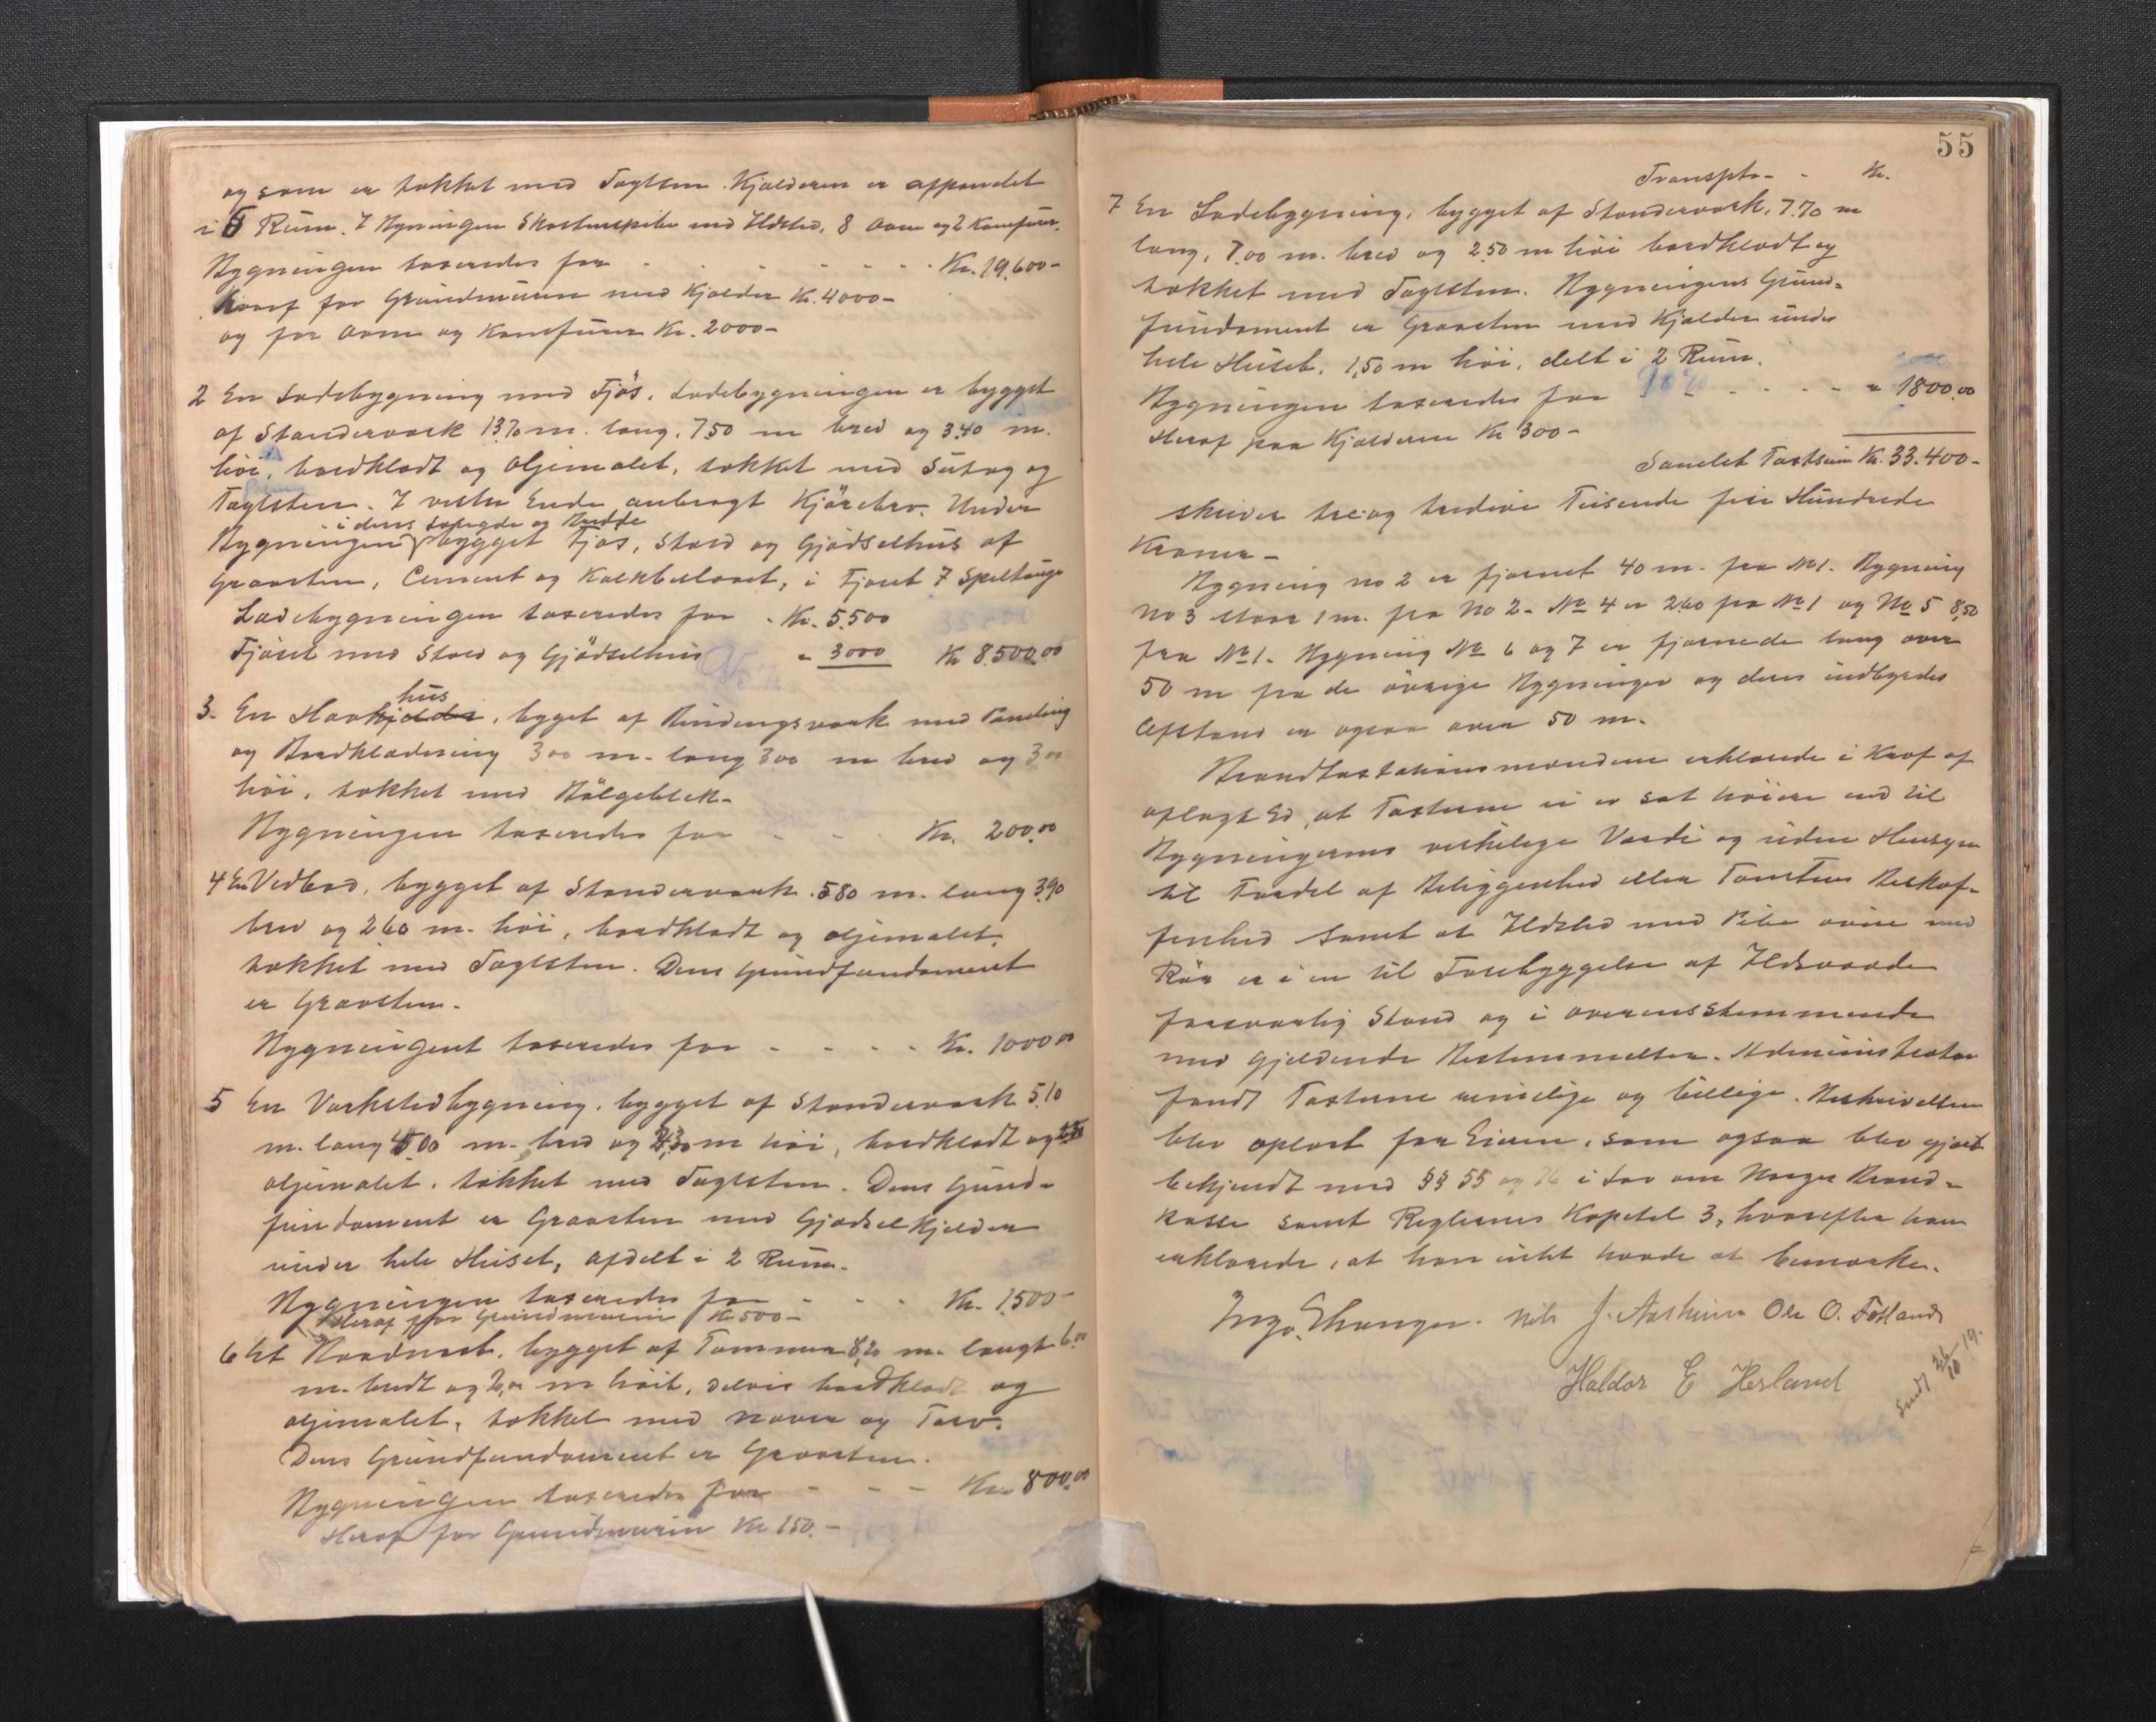 og som er tækket med Taglsten. Kjælderen er afpanelet
i 6 Rum. I Bygningen Skorstenspibe med Ildsted, 8 Ovne og 2 Komfurer.
Bygningen taxeredes for - - - - - - Kr. 19.600-
hvoraf for Grundmuren med Kjælder Kr. 4000-
og for Ovne og Komfurer Kr. 2000-
2 En Ladebygning med Fjös. Ladebygningen er bygget
af Standerværk 13,70 m. lang, 7,50 m bred og 3,40 m.
höi, bordklædt og oljemalet, tækket med Sutag og
Taglsten. I vestre Ende anbragt Kjörebro. Under
i dens Længde og Bredde
Bygningen bygget Fjös, Stald og Gjödselhus af
Graasten, Cement og Kalkbeslaaet, i Fjöset 7 Spiltauge
Ladebygningen taxeredes for - Kr. 5.500
Fjöset med Stald og Gjödselhus " 3000 Kr 8.500,00
hus
3. En Havekjælder, bygget af Bindingsværk med Paneling
og Bordklædning 3,00 m. lang 3,00 m bred og 3,00
höi, tækket med Bölgeblik.
Bygningen taxeredes for - - - Kr. 200,00
4 En Vedbod, bygget af Standerværk. 5,80 m. lang 3,90
bred og 2,60 m. höi, bordklædt og oljemalet,
tækket med Taglsten. Dens Grundfundament
er Graasten.
Bygningent taxeredes for - - - - Kr. 1000,00
5 En Verkstedbygning, bygget af Standerværk 5,10
m. lang 5,00 m. bred og m höi, bordklædt og
oljemalet, tækket med Taglsten. Dens Grund-
fundament er Graasten med Gjödselkjelder
under hele Huset, afdelt i 2 Rum.
Bygningen taxeredes for - - - Kr. 1500-
Heraf for Grundmuren Kr 500-
6 Et Naustnest, bygget af Tömmer 8,20 m. langt 6,00
m. bredt og 2,00 m höit, delvis bordklædt og
oljemalet, tækket med Næver og Torv.
Dens Grundfundament er Graasten.
Bygningen taxeredes for - - - Kr. 800,00
Heraf for Grundmuren Kr 150.-
55
Transpt. - - Kr.
7 En Ladebygning, bygget af Standerværk, 7,70 m
lang, 7,00 m. bred og 2,50 m höi bordklædt og
tækket med Taglsten. Bygningens Grund-
fundament er Graasten med Kjelder under
hele Huset, 1,50 m höi, delt i 2 Rum.
Bygningen taxeredes for - - - - " 1800,00
Heraf paa Kjælderen Kr 300-
Samlet Taxtsum Kr. 33.400-
skriver treog tredive Tusende fire Hundrede
Kroner-
Bygning no 2 er fjernet 40 m. fra No 1. Bygning
No 3 staar 1 m. fra No 2. No 4 er 2,60 fra No 1 og No 5 8,50
fra No 1. Bygning No 6 og 7 er fjernede lang over
50 m fra de övrige Bygninger og deres indbyrdes
Afstand er ogsaa over 50 m.
Brandtaxtationsmændene erklærede i Kraf af
aflagt Ed, at Taxterne ei er sat höiere end til
Bygningernes virkelige Værdi og uden Hensyn
til Fordel af Beliggenhed eller Tomtens Beskaf-
fenhed samt at Ildsted med Pibe ovne med
Rör er i en til Forebyggelse af Ildsvaade
forsvarlig Stand og i overensstemmende
med gjeldende Bestemmelser. Administrator
fandt Taxterne rimelige og billige. Beskrivelsen
blev oplæst for Eieren, som ogsaa blev gjort
bekjendt med §§ 55 og 76 i Lov om Norges Brand-
kasse samt Reglernes Kapitel 3, hvorefter han
erklærede, at han intet havde at bemærke.
Inge. Ekanger. Nils J. Aasheim Ole O. Fotland
Haldor E Herland
Sendt 26/10 19.